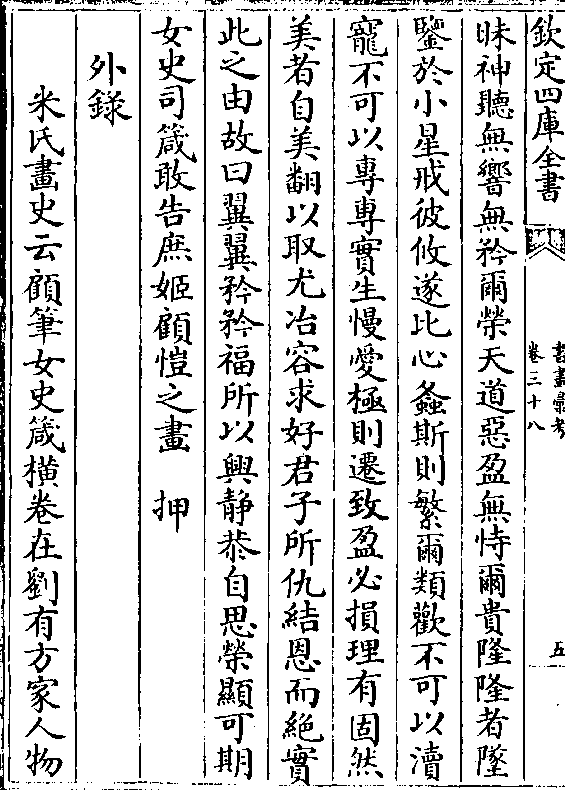 欽定四庫全書
書畫彙考
卷三十八
五
昧神聽無響無矜爾榮天道惡盈無恃爾貴隆隆者墜
鑒於小星戒彼攸遂比心螽斯則繁爾類歡不可以瀆
寵不可以專專實生慢愛極則遷致盈必損理有固然
美者自美翻以取尤冶容求好君子所仇結恩而絕實
此之由故曰翼翼矜矜福所以興靜恭自思榮顯可期
女史司箴敢告庶姬顧愷之畫　押
外錄
米氏畫史云顧筆女史箴橫卷在劉有方家人物